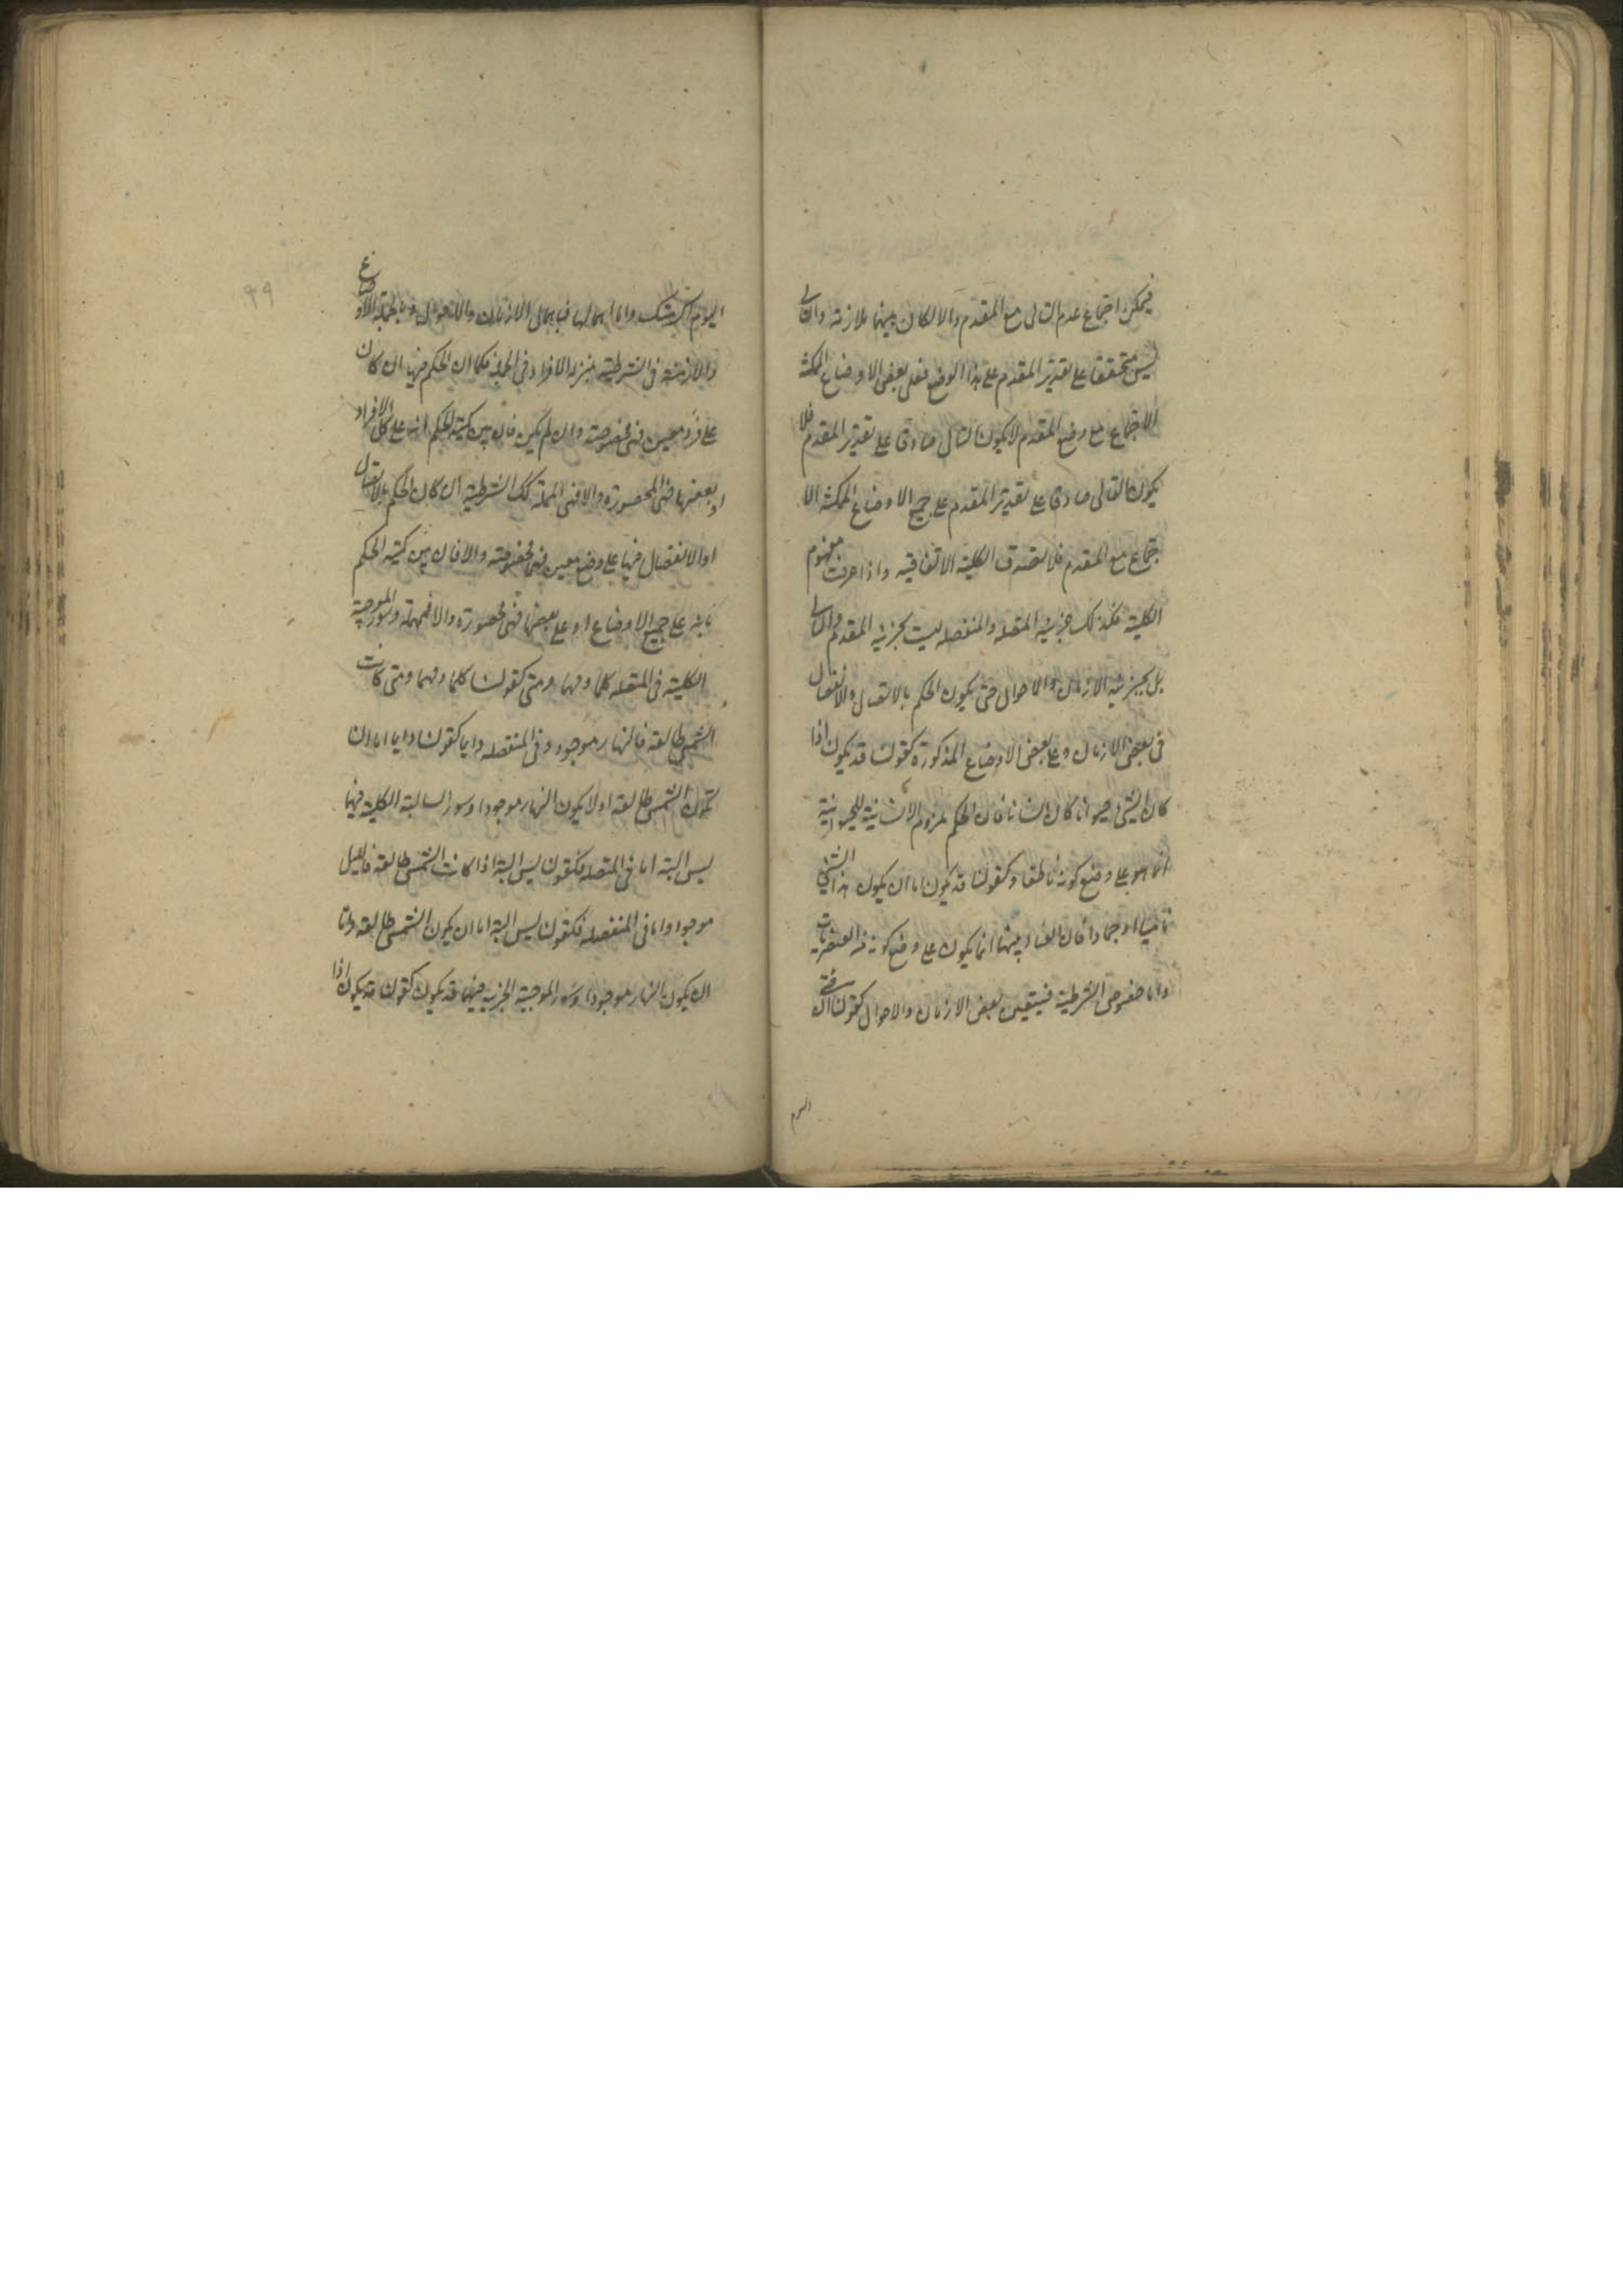 فيمكن اجتماع عدم التالى مع المقدم والا لكان بينهما ملازمة والتالى
ليس متحققا على تقدير المقدم على هذا الوضع فعلى بعض الاوضاع الممكنة
الاجتماع مع وضع المقدم لا يكون التالى صادقا على تقدير المقدم فلا
يكون التالى صادقا على تقدير المقدم على جميع الاوضاع الممكنة الا
جتماع مع المقدم فلا تصدق الكلية الاتفاقية واذا عرفت مفهوم
الكلية فكذلك جزئية المتصلة والمنفصلة ليست بجزئية المقدم والتالى
بل بجزئية الازمان والاحوال حتى يكون الحكم بالاتصال والانفصال
فى بعض الازمان وعلى بعض الاوضاع المذكورة كقولنا قد يكون اذا
كان الشىء حيوانا كان انسانا فان الحكم بلزوم الانسانية للحيوانية
انما هو على وضع كونه ناطقا وكقولنا قد يكون اما ان يكون هذا الشىء
ناميا او جمادا فان العناد بينهما انما يكون على وضع كونه من العنصريات
واما خصوص الشرطية فبتعين بعض الازمان والاحوال كقولنا ان جئتنى
اليوم
اليوم اكرمتك واما اهمالها فباهمال الازمان والاحوال وبالجملة الاوضاع
والازمنة فى الشرطية بمنزلة الافراد فى الحملية فكما ان الحكم فيها ان كان
على فرد معين فهى مخصوصة وان لم يكن فان بين كمية الحكم انه على كل الافراد
او بعضها فهى المحصورة والا فهى المهملة كك الشرطية ان كان الحكم بالاتصال
او الانفصال فيها على وضع معين فهى مخصوصة والا فان بين كمية الحكم
بانه على جميع الاوضاع او على بعضها فهى محصورة والا فمهملة وسور الموجبة
الكلية فى المتصلة كلما ومهما ومتى كقولنا كلما ومهما ومتى كانت
الشمس طالعة فالنهار موجود وفى المنفصلة دايما كقولنا دايما اما ان
تكون الشمس طالعة او لا يكون النهار موجودا وسور السالبة الكلية فيهما
ليس البتة اما فى المتصلة فكقولنا ليس البتة اذا كانت الشمس طالعة فالليل
موجود واما فى المنفصلة فكقولنا ليس البتة اما ان يكون الشمس طالعة واما
ان يكون النهار موجودا وسور الموجبة الجزئية فيهما قد يكون كقولنا قد يكون اذا